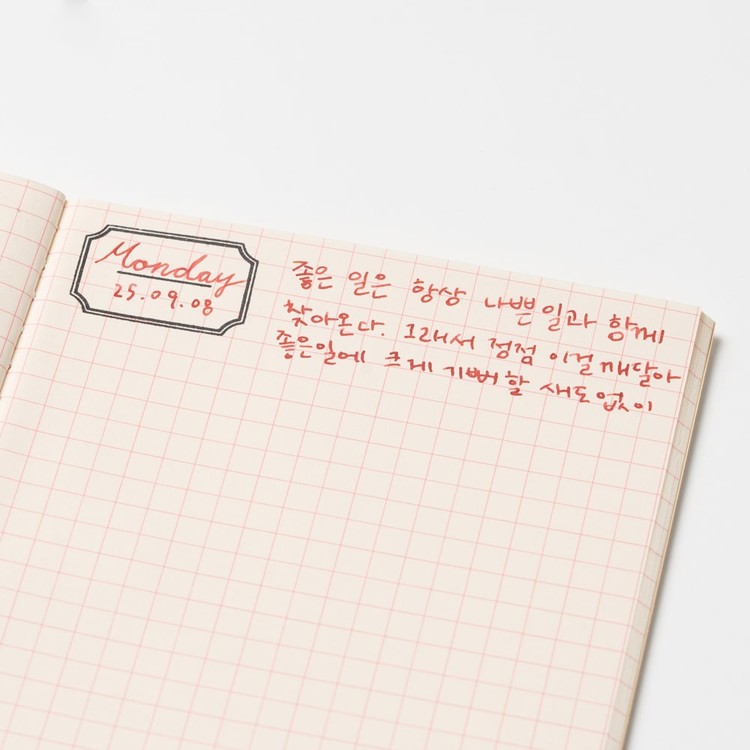 Monday
25.09.08
좋은 일은 항상 나쁜일과 함께
찾아온다. 그래서 정점 이걸 깨달아
좋은일에 크게 기뻐할 새도없이